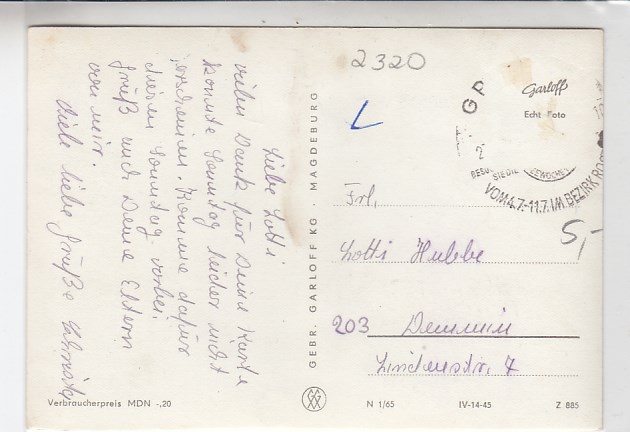 2320
Liebe Lotti
vielen Dank für Deine Karte
konnte Sonntag leider nicht
erscheinen. Komme dafür
diesen Sonntag vorbei.
Gruß und Deine Eltern
von mir.
Viele liebe Grüße
GEBR. GARLOFF KG · MAGDEBURG
Garloff
Echt Foto
GP
VOM 4.7.-11.7. IM BEZIRK RO
5,-
Frl.
Lotti Hubbe
203 Demmin
Lindenstr. 7
Verbraucherpreis MDN -,20
N 1/65
IV-14-45
Z 885